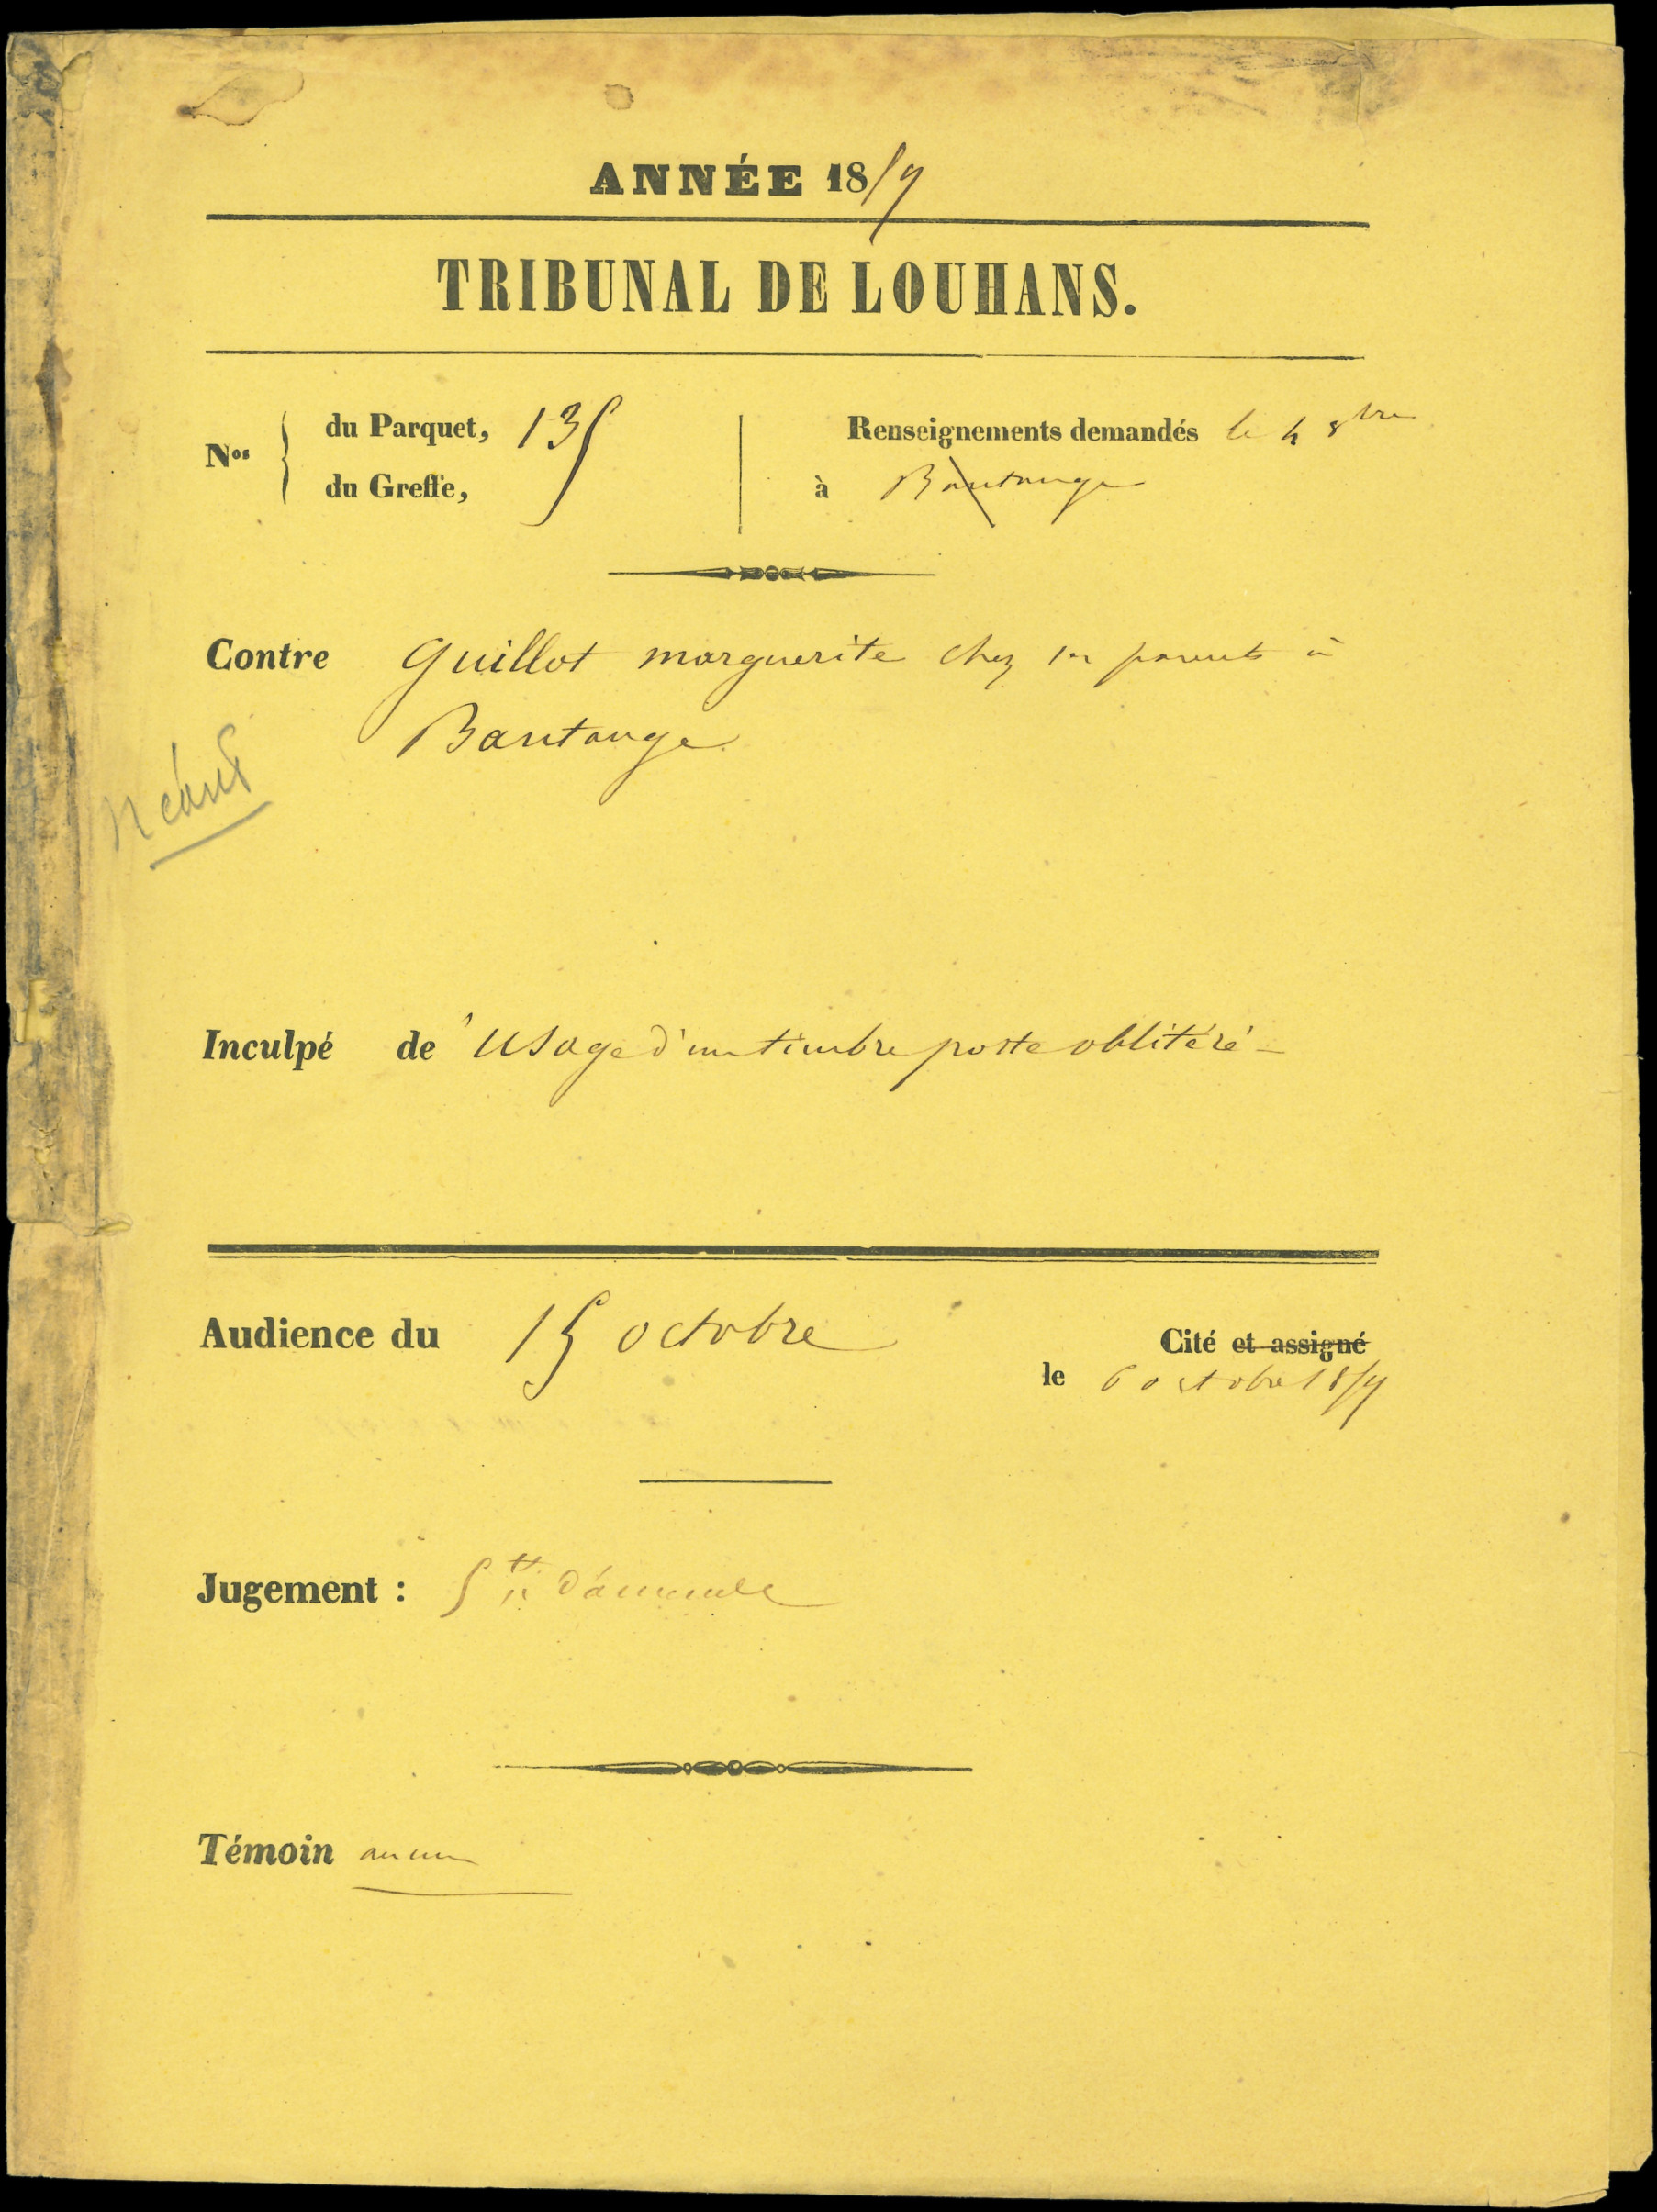 ANNÉE 1859
TRIBUNAL DE LOUHANS.
Nos du Parquet, 135
du Greffe,
Renseignements demandés le 4 8bre
à Bantange
Contre Guillot marguerite chez ses parents à
Bantange
Néant
Inculpé de Usage d'un timbre poste oblitéré -
Audience du 15 octobre
Cité et assigné
le 6 octobre 1859
Jugement : 5 d'amende
Témoin aucun